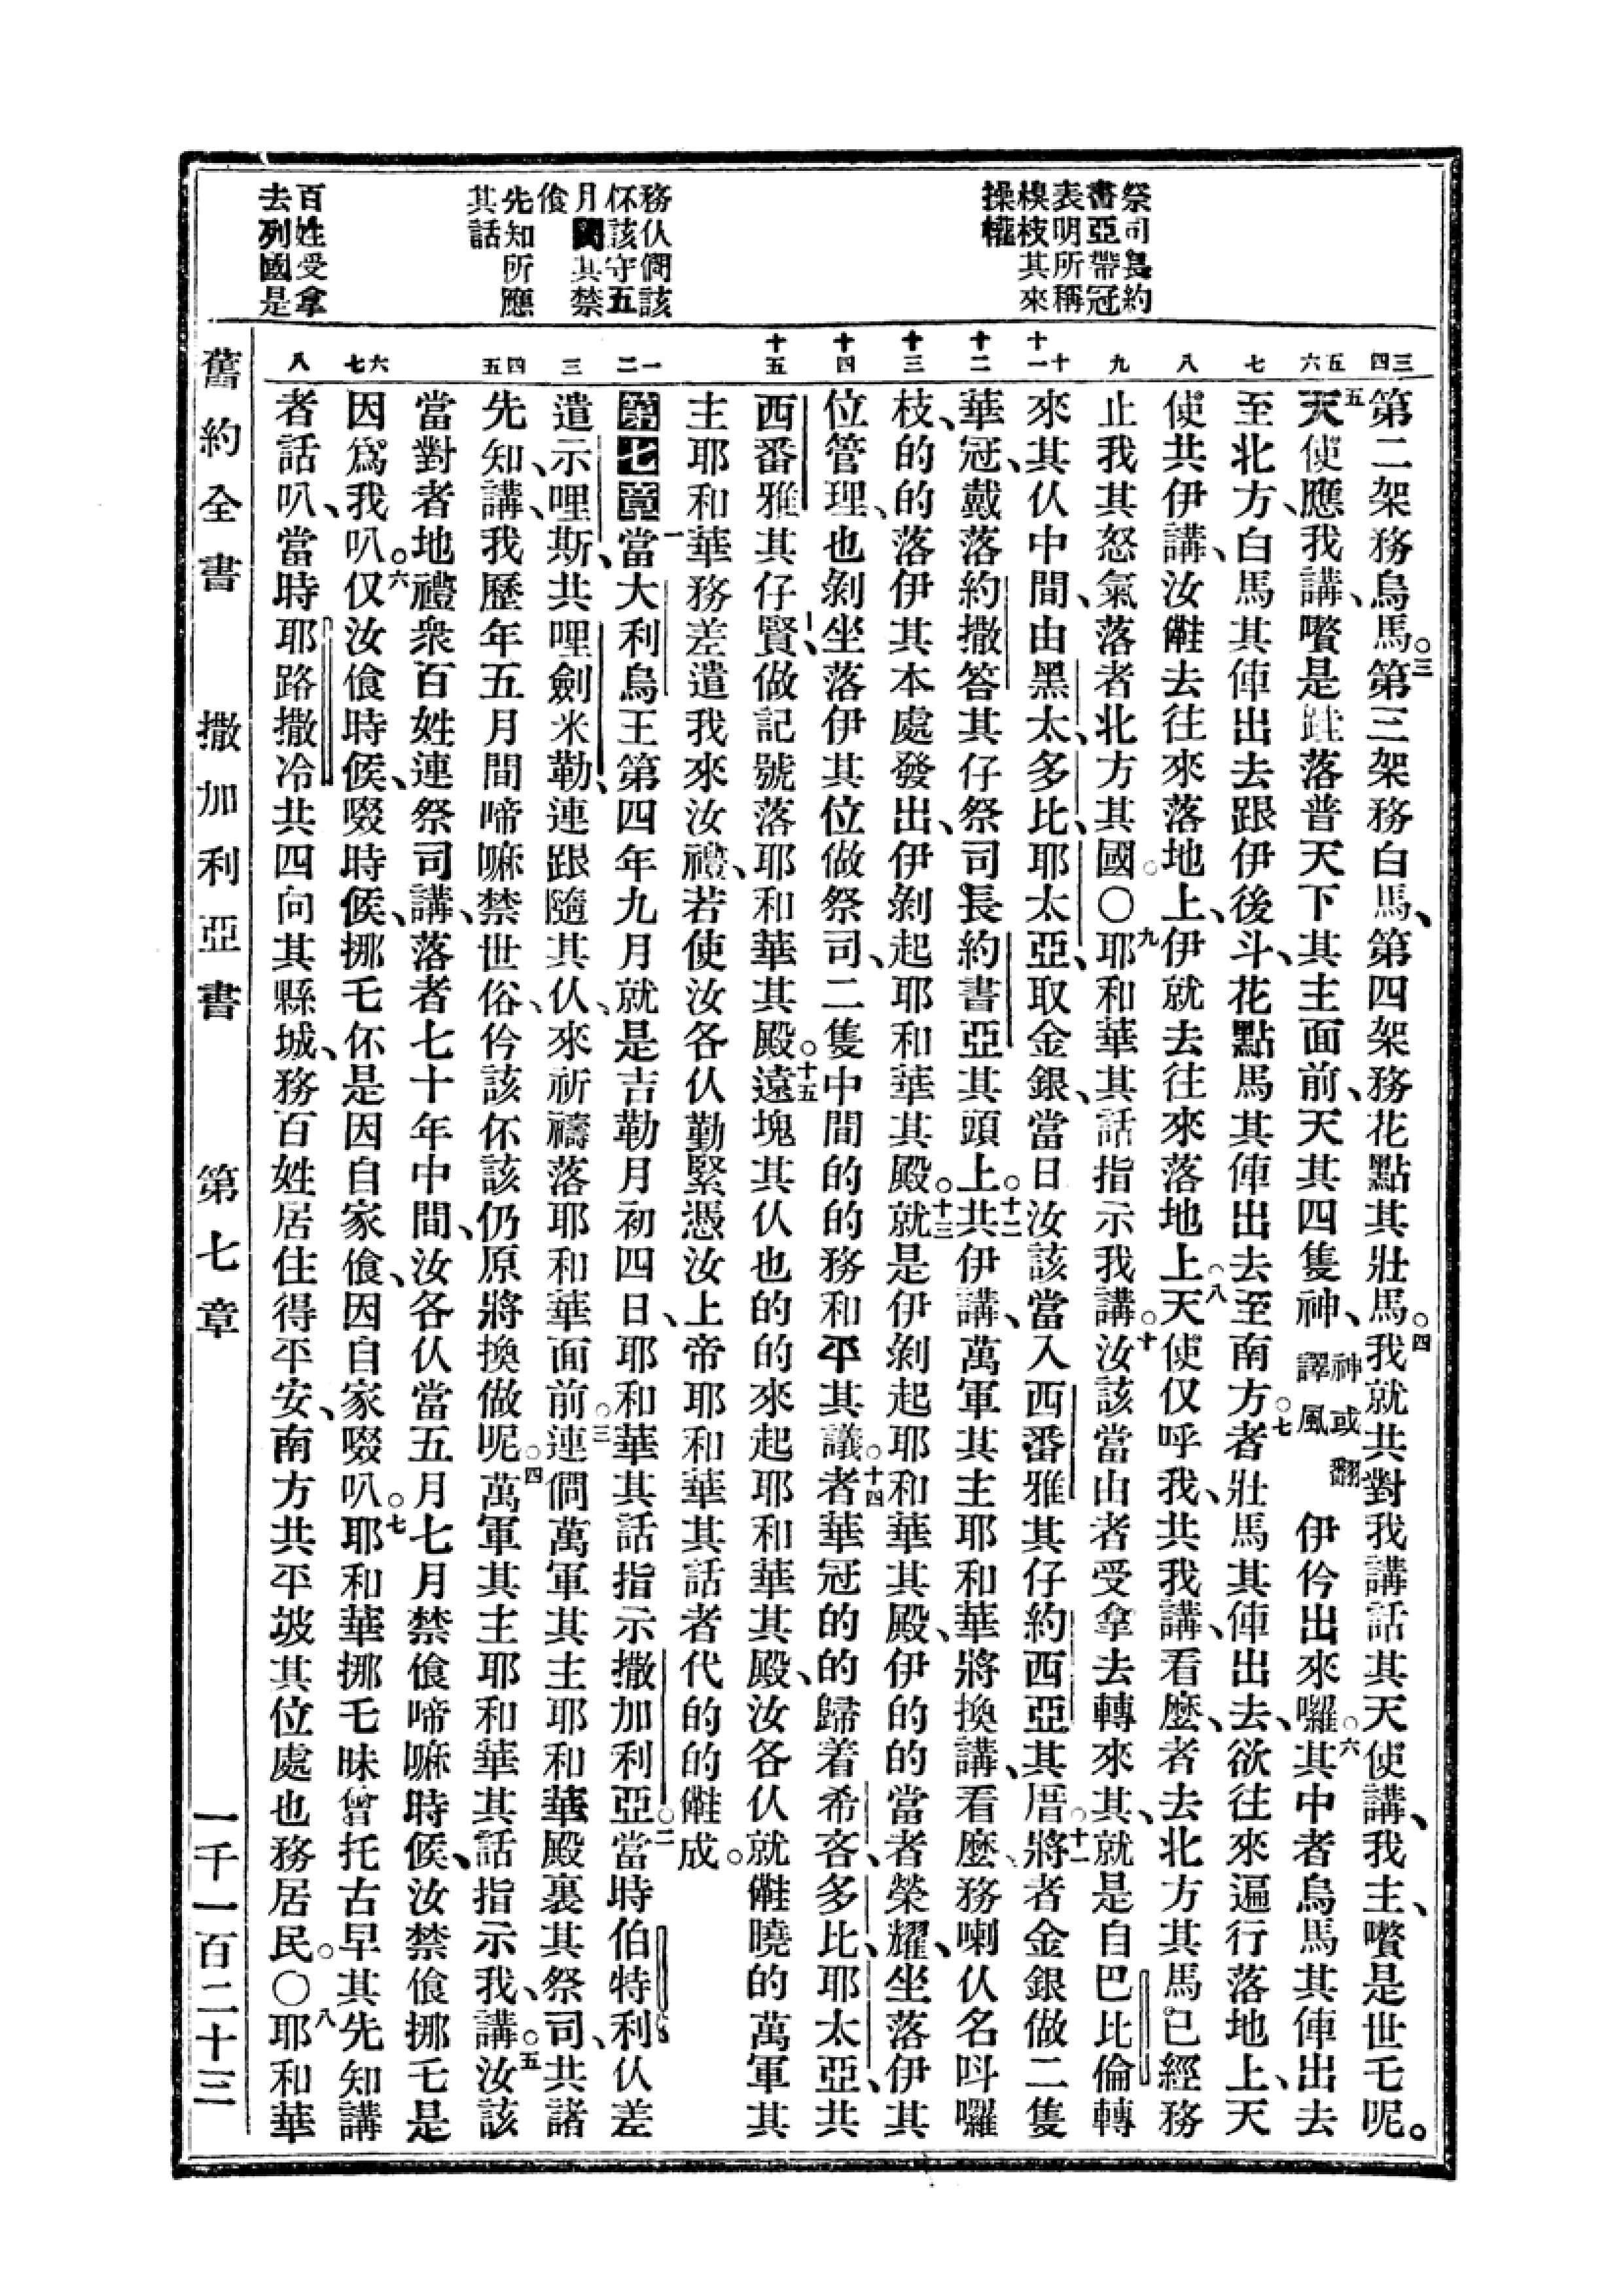 祭司長約
書亞帶冠
表明所稱
槺枝其來
操權
務仈僩該
伓該守五
月間其禁
飧
先知所應
其話
百姓受拿
去列國是
三四
五六
七
八
九
十十一
十二
十三
十四
十五
一二
三
四五
六七
八
第二架務烏馬。三第三架務白馬、第四架務花點其壯馬。四我就共對我講話其天使講、我主、嚽是世乇呢。
五天使應我講、嚽是䟴落普天下其主面前、天其四隻神、神或翻譯風伊伶出來囉。六其中者烏馬其俥出去
至北方、白馬其俥出去跟伊後、斗花點馬其俥出去至南方。七者壯馬其俥出去、欲往來遍行落地上、天
使共伊講、汝𠆧去往來落地上、伊就去往來落地上。八天使仅呼我、共我講、看麼、者去北方其馬已經務
止我其怒氣落者北方其國。〇九耶和華其話指示我講。十汝該當由者受拿去轉來其、就是自巴比倫轉
來其仈中間、由黑太、多比、耶太亞、取金銀、當日汝該當入西番雅其仔約西亞其厝。十一將者金銀做二隻
華冠、戴落約撒答其仔祭司長約書亞其頭上。十二共伊講、萬軍其主耶和華將換講、看麼、務喇仈名呌囉
枝、的的落伊其本處發出、伊剝起耶和華其殿。十三就是伊剝起耶和華其殿、伊的的當者榮耀、坐落伊其
位管理、也剝坐落伊其位做祭司、二隻中間的的務和平其議。十四者華冠的的歸着希客、多比、耶太亞、共
西番雅其仔賢、做記號落耶和華其殿。十五遠塊其仈也的的來起耶和華其殿、汝各仈就𠆧曉的萬軍其
主耶和華務差遣我來汝禮、若使汝各仈勤緊憑汝上帝耶和華其話者代的的𠆧成。
第七章一當大利烏王第四年九月就是吉勒月初四日、耶和華其話指示撒加利亞。二當時伯特利仈差
遣示哩斯、共哩劍米勒、連跟隨其仈、來祈禱落耶和華面前。三連僩萬軍其主耶和華殿裏其祭司、共諸
先知、講、我歷年五月間啼嘛禁世俗、伶該伓該仍原將換做呢。四萬軍其主耶和華其話指示我、講。五汝該
當對者地禮衆百姓連祭司講、落者七十年中間、汝各仈當五月七月禁飧啼嘛時候、汝禁飧挪乇是
因爲我叭。六仅汝飧時候、啜時候、挪乇伓是因自家飧、因自家啜叭。七耶和華挪乇昧曾托古早其先知講
者話叭、當時耶路撒冷共四向其縣城、務百姓居住得平安、南方共平坡其位處也務居民。〇八耶和華
舊約全書　撒加利亞書　第七章　一千一百二十三